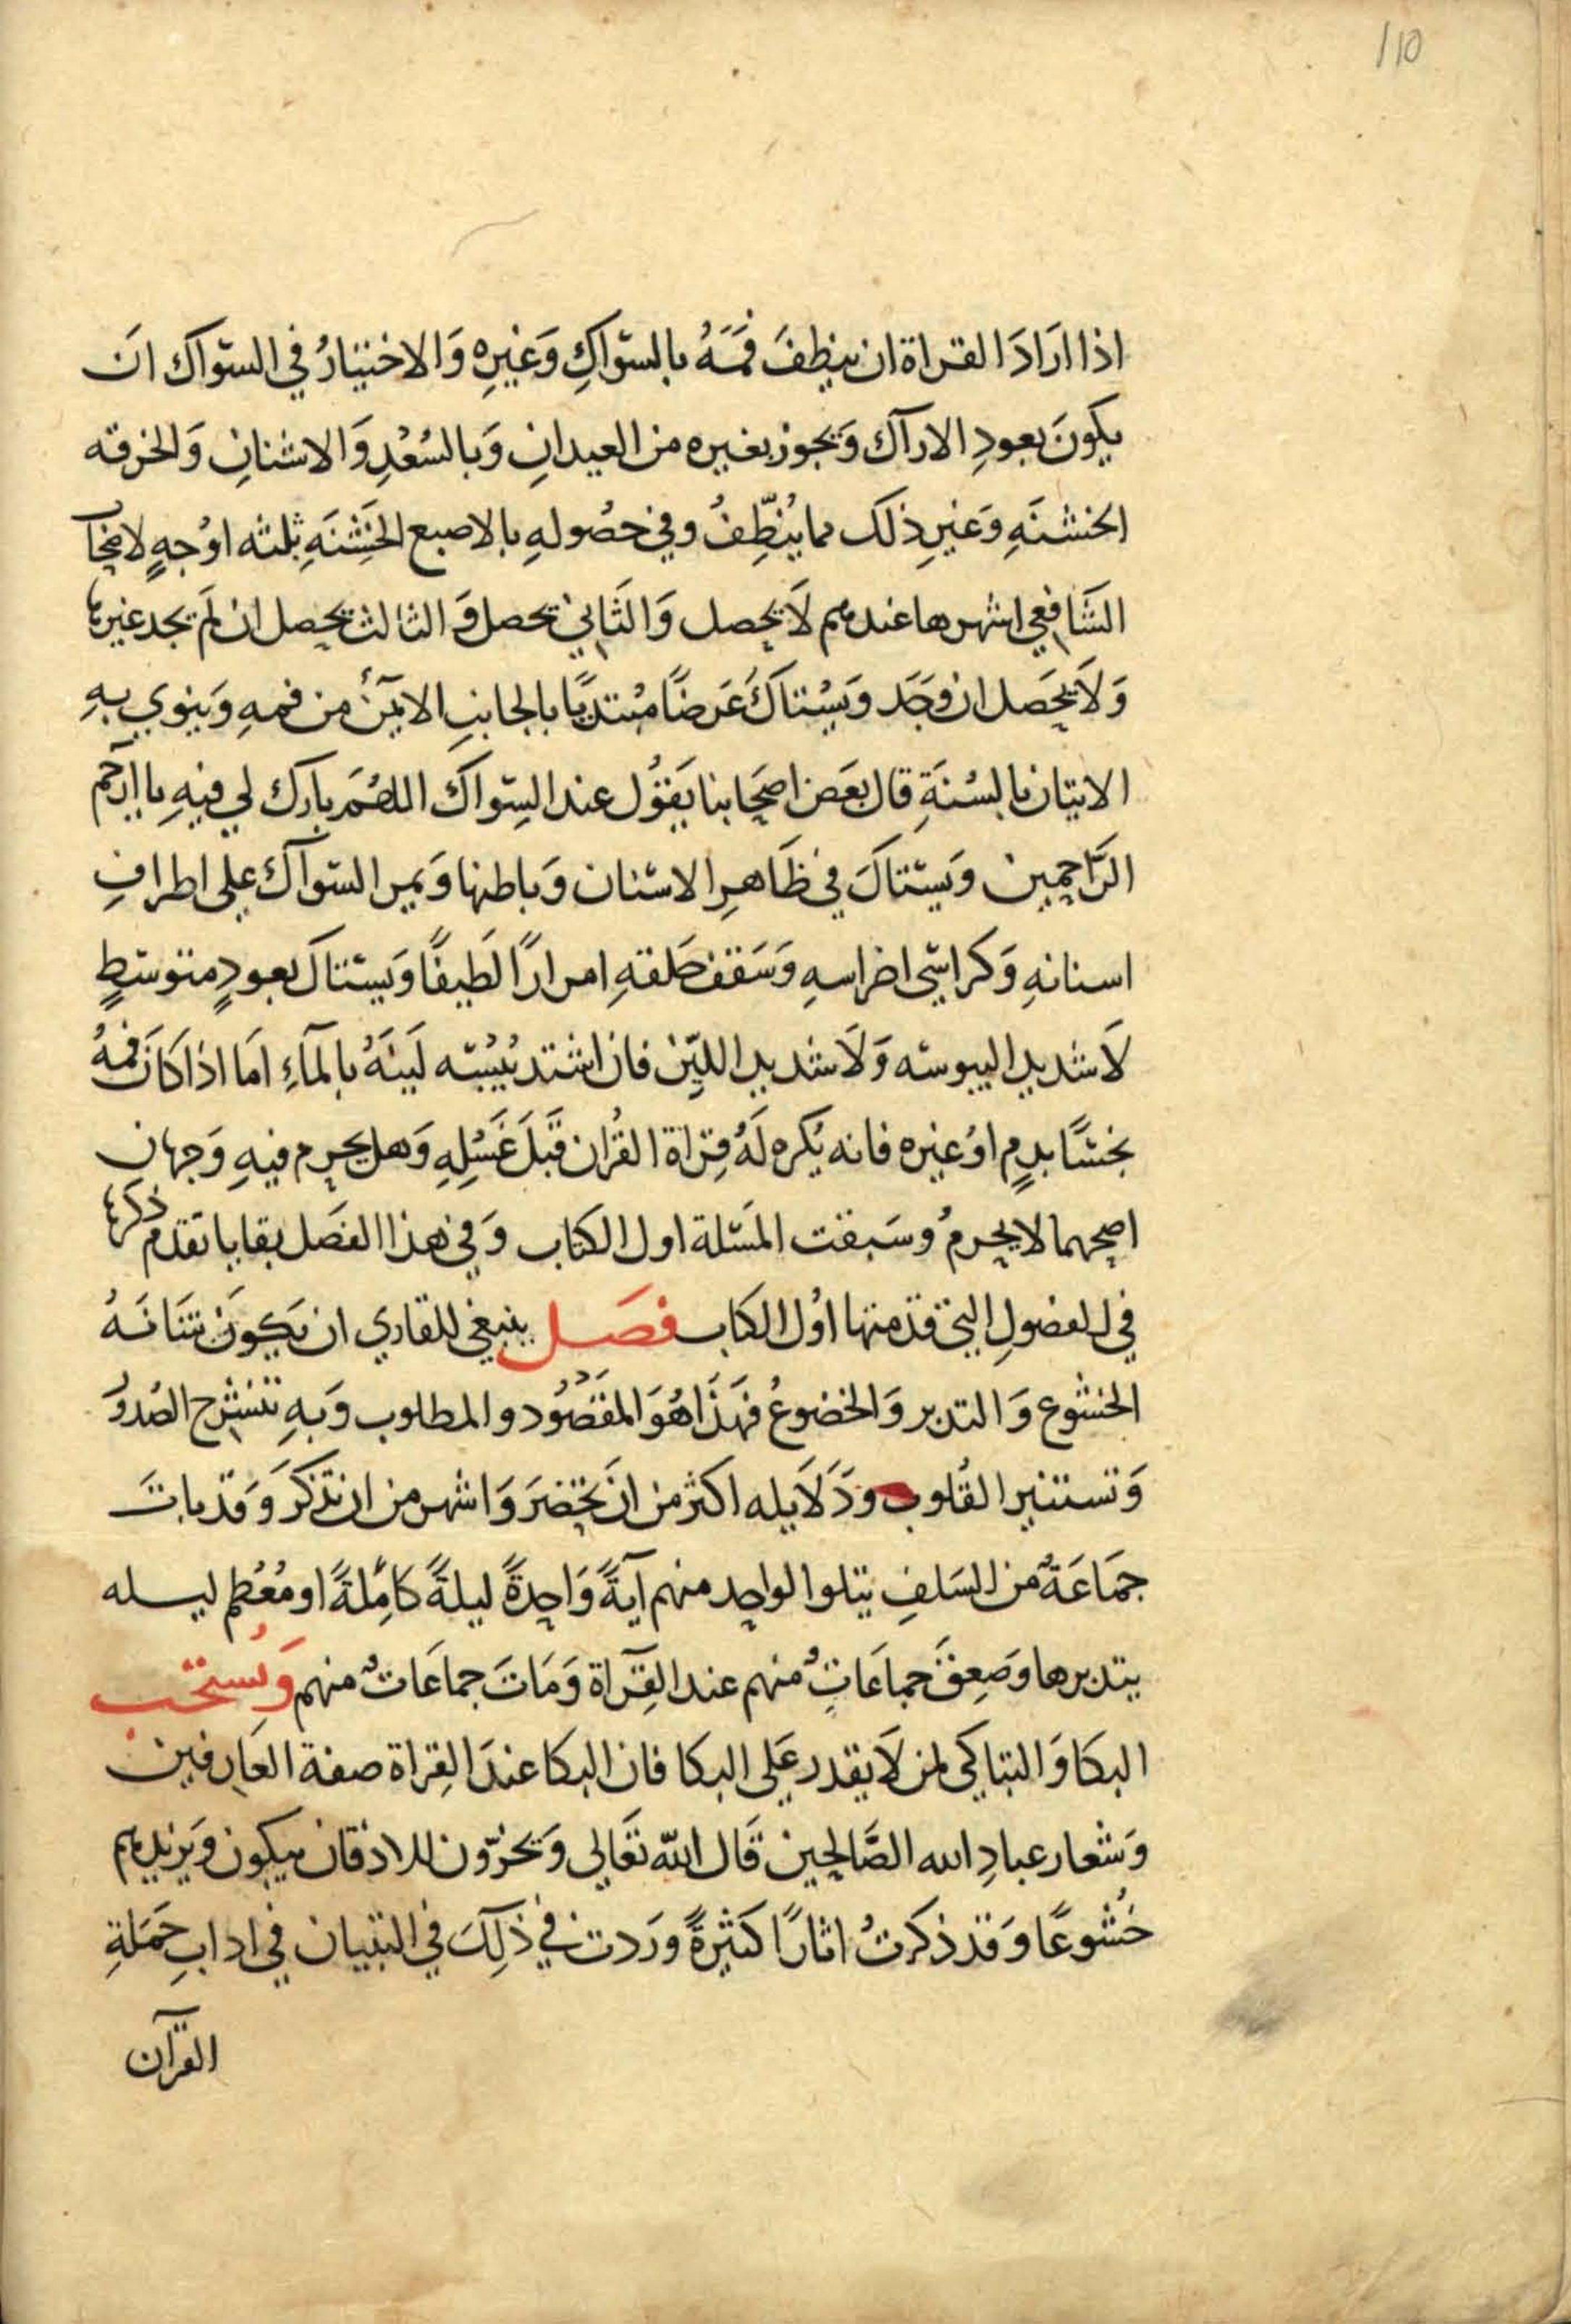 110
اذا ارَادَ القراة ان ينظفَ فمَهُ بالسّواكِ وَغيرِه وَالاختيَارُ في السّواك انَ
يكونَ بعودِ الاراَك وَيجوز بغيره من العيدانِ وَبالسُعْدِ وَالاشنانِ وَالخرقه
الخشنَهِ وَغيرِ ذلك مما يُنظِّفُ وفي حصُولهِ بالاصبع الخَشِنَهِ ثلثه اوْجهٍ لاصحَاب
الشَافعي اشهرها عندهم لاَ يحصل وَالثَاني يحصل وَ الثالث يحصل ان لَم يجد غيرها
وَلاَ يحصَل ان وَجَد وَيسْتاكُ عَرضًا مبْتديًا بالجانبِ الايمَنْ من فمهِ وَينوي بهِ
الاتيَان بالسُنَةِ قال بعَض اصحَابنا يَقوُل عند السِّواكَ اللهُمَ بارك لي فيهِ يا ارحَم
الرَّاحمين وَيسْتاكَ في ظَاهرِ الاسنان وَباطنها وَيمر السّواكَ علي اطرافِ
اسنانهِ وَكراسِّي اضراسهِ وَسَقف حَلقهِ امرارًا لَطيفًا وَيستاكَ بعودٍ متوسّطٍ
لاَ شديد اليبوسه وَلاَ شديد الليّن فان اشتد يُبسْه لَينَهُ بالمآءِ امَا اذا كانَ فمهُ
نجسًا بدمٍ اوْ غيره فانه يُكره لَهُ قِراة القُران قَبلَ غَسْلِهِ وَهل يحرم فيهِ وَجهانِ
اصحهما لا يحرمُ وسَبقت المَسْلة اول الكتاب وَفي هذا الفصَل بقايا تقدم ذكرها
في الفضولِ التي قدمتها اوْل الكتاب فصَل ينبغي للقاري ان يَكونَ شَانَهُ
الخشوع وَ التدبر وَ الخضوعُ فهَذَا هُوَ المقصُود والمطلوب وَبهِ تنشرح الصُدوُر
وَتستنير القُلوب ودَلاَيله اكثر من انَ تحصَر وَاشهر من ان تذكَر وَقد باتَ
جمَاعَةٌ من السَلفِ يتلوا الواحِد منهم آيةً وَاحِدةً ليلةً كامِلةً او مُعْظم ليله
يتدبرها وَصَعِقَ جماعَاتٌ منهم عند القِرآة وَمَاتَ جماعَاتٌ منهم وَيُستحَب
البكَا وَ التباكي لمن لاَ يقدر عَلي البكا فان البكا عندَ القِراة صفة العَارفين
وَشعار عبادِ الله الصَّالحِين قَال الله تعَالي وَيخرّون للاذقان يبكون وَيزيدهم
خُشوعًا وَقد ذكرتُ اثارًا كثيرةً ورَدت في ذلِكَ في التبيان في ادابِ حَمَلةِ
القرآن